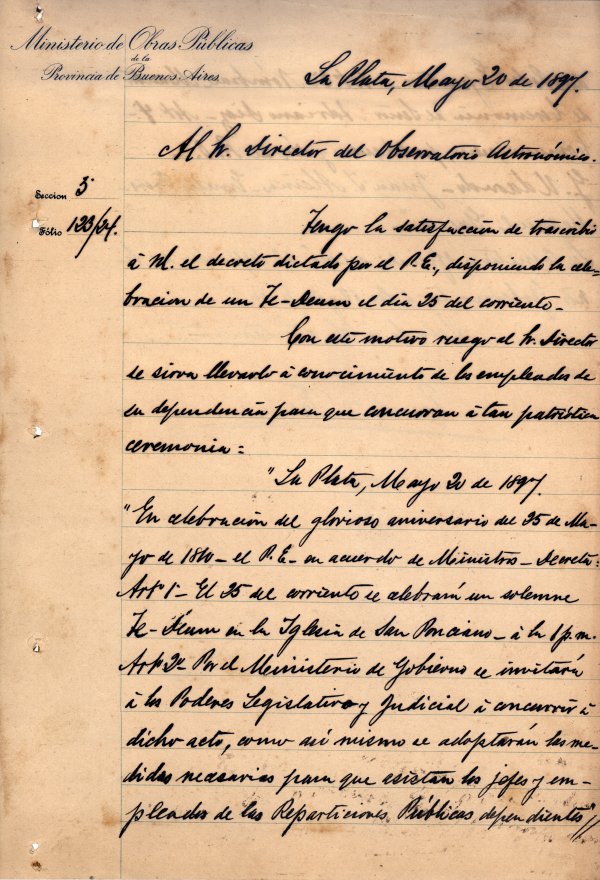 Ministerio de Obras Públicas
de la
Provincia de Buenos Aires
La Plata, Mayo 20 de 1897.
Al Sr. Director del Observatorio Astronómico.
Seccion 3ª
Fólio 123/24.
Tengo la satisfacción de trascribir
á Vd. el decreto dictado por el P.E., disponiendo la cele-
bracion de un Te-Deum el dia 25 del corriente.
Con este motivo ruego al Sr. Director
se sirva llevarlo á conocimiento de los empleados de
su dependencia para que concurran á tan patriótica
ceremonia:
"La Plata, Mayo 20 de 1897.
"En celebración del glorioso aniversario del 25 de Ma-
yo de 1810 - el P.E. - en acuerdo de Ministros - Decreta:
Artº 1º - El 25 del corriente se celebrará un solemne
Te-Deum en la Iglesia de San Ponciano - á la 1 p.m.
Artº 2º Por el Ministerio de Gobierno se invitará
á los Poderes Legislativo y Judicial á concurrir á
dicho acto, como así mismo se adoptarán las me-
didas necesarias para que asistan los jefes y em-
pleados de las Reparticiones Públicas dependientes//